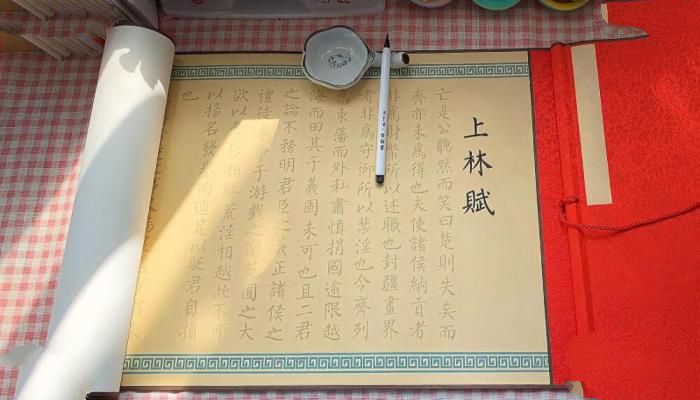 上林賦
亡是公聽然而笑曰楚則失矣而
齊亦未為得也夫使諸侯納貢者
非為財幣所以述職也封疆畫界
者非為守御所以禁淫也今齊列
為東藩而外私肅慎捐國逾限越
海而田其于義固未可也且二君
之論不務明君臣之義正諸侯之
禮徒于游戲之樂苑囿之大
欲以相勝荒淫相越此不可
以揚名發而適足以貶君自損
也